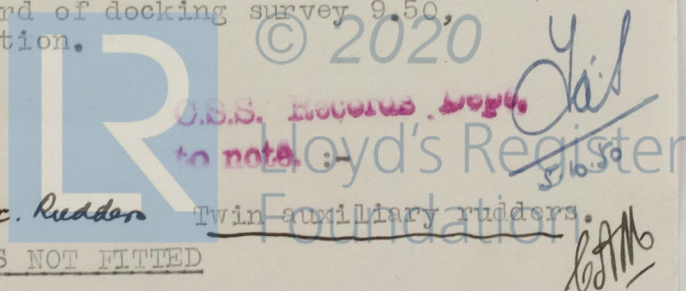 rd of docking survey 9.50,
tion.
© 2020
C.S.S. Records Dept.
to note. :-
Lloyd's Register
Foundation
5/10.50
c. Rudders Twin auxiliary rudders.
S NOT FITTED